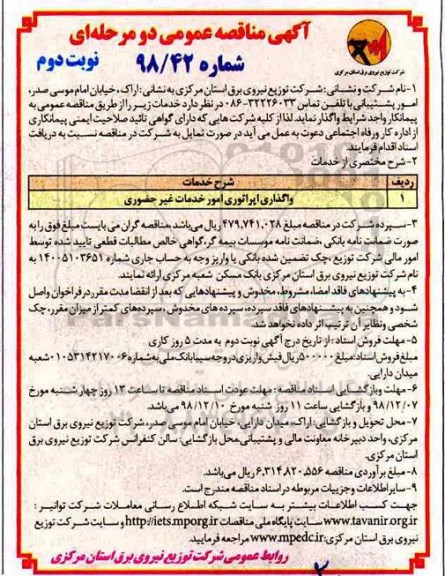 آگهی مناقصه عمومی دو مرحله‌ای
شماره ۹۸/۴۲
نوبت دوم
شرکت توزیع نیروی برق استان مرکزی
۱-نام شرکت و نشانی: شرکت توزیع نیروی برق استان مرکزی به نشانی: اراک، خیابان امام موسی صدر،
امور پشتیبانی با تلفن تماس ۳۲۲۲۶۰۳۳-۰۸۶ در نظر دارد خدمات زیر را از طریق مناقصه عمومی به
پیمانکار واجد شرایط واگذار نماید. لذا از کلیه شرکت هایی که دارای گواهی تائید صلاحیت ایمنی پیمانکاری
از اداره کار و رفاه اجتماعی دعوت به عمل می آید در صورت تمایل به شرکت در مناقصه نسبت به دریافت
اسناد اقدام فرمایند.
۲-شرح مختصری از خدمات
ردیف شرح خدمات
۱ واگذاری اپراتوری امور خدمات غیر حضوری
۳-سپرده شرکت در مناقصه مبلغ ۴۷۹,۷۴۱,۰۲۸ ریال می باشد. مناقصه گران می بایست مبلغ فوق را به
صورت ضمانت نامه بانکی، ضمانت نامه موسسات بیمه گر، گواهی خالص مطالبات قطعی تایید شده توسط
امور مالی شرکت توزیع، چک تضمین شده بانکی یا واریز وجه به حساب جاری شماره ۱۴۰۰۵۱۰۳۶۵۱ به
نام شرکت توزیع نیروی برق استان مرکزی بانک مسکن شعبه مرکزی ارائه نمایند.
۴-به پیشنهادهای فاقد امضا، مشروط، مخدوش و پیشنهادهایی که بعد از انقضا مدت مقرر در فراخوان واصل
شود و همچنین به پیشنهادهای فاقد سپرده، سپرده های مخدوش، سپرده‌های کمتر از میزان مقرر، چک
شخصی و نظایر آن ترتیب اثر داده نخواهد شد.
۵-مهلت فروش اسناد: از تاریخ درج آگهی نوبت دوم به مدت ۵ روز کاری
مبلغ فروش اسناد: مبلغ ۵۰۰,۰۰۰ ریال فیش واریزی در وجه سیبا بانک ملی به شماره ۰۱۰۵۳۱۴۲۱۷۰۰۶ شعبه
میدان دارایی.
۶-مهلت و بازگشایی اسناد مناقصه: مهلت عودت اسناد مناقصه تا ساعت ۱۳ روز چهار شنبه مورخ
۹۸/۱۲/۰۷ و بازگشایی ساعت ۱۱ روز شنبه مورخ ۹۸/۱۲/۱۰ می‌باشد.
۷-محل تحویل و بازگشایی: اراک، میدان دارایی، خیابان امام موسی صدر، شرکت توزیع نیروی برق استان
مرکزی، واحد دبیرخانه معاونت مالی و پشتیبانی، محل بازگشایی: سالن کنفرانس شرکت توزیع نیروی برق
استان مرکزی.
۸-مبلغ برآوردی مناقصه ۶,۳۱۴,۸۲۰,۵۵۶ ریال می‌باشد.
۹-سایر اطلاعات و جزییات مربوطه در اسناد مناقصه مندرج است.
جهت کسب اطلاعات بیشتر به سایت شبکه اطلاع رسانی معاملات شرکت توانیر:
www.tavanir.org.ir سایت پایگاه ملی مناقصات http://iets.mporg.ir و سایت شرکت توزیع
نیروی برق استان مرکزی: www.mpedc.ir مراجعه فرمایید.
روابط عمومی شرکت توزیع نیروی برق استان مرکزی